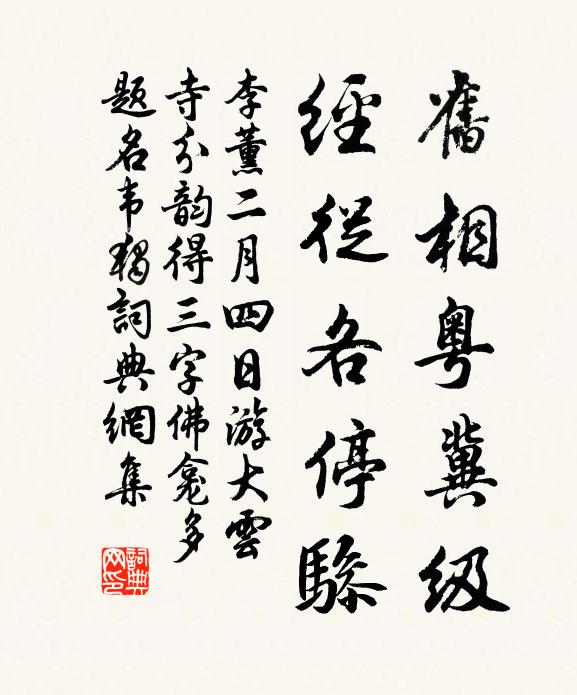 舊相粤冀级
經從各停驂
李薰二月四日游大雲
寺分韵得三字佛龕多
題名韦獨詞典網集
詞典网印